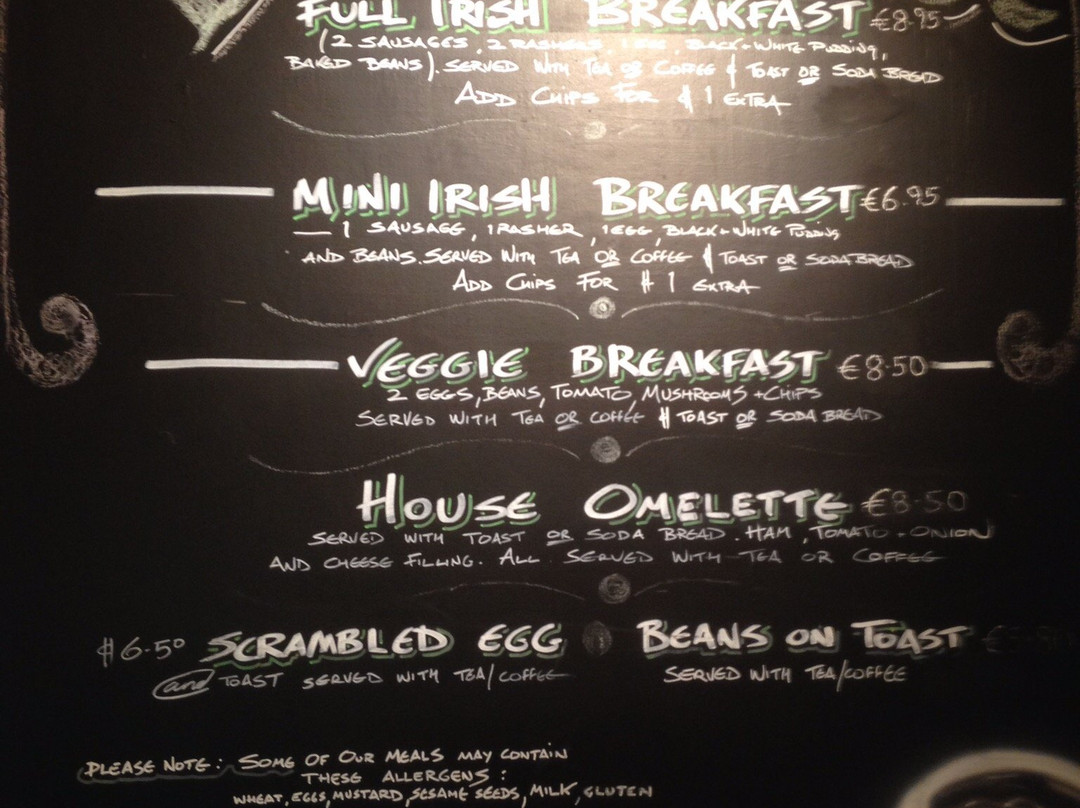 FULL IRISH BREAKFAST €8.95
(2 SAUSAGES, 2 RASHERS, 1 EGG, BLACK + WHITE PUDDING,
BAKED BEANS). SERVED WITH TEA OR COFFEE & TOAST OR SODA BREAD
ADD CHIPS FOR € 1 EXTRA
MINI IRISH BREAKFAST €6.95
1 SAUSAGE, 1 RASHER, 1 EGG, BLACK + WHITE PUDDING
AND BEANS. SERVED WITH TEA OR COFFEE & TOAST OR SODA BREAD
ADD CHIPS FOR € 1 EXTRA
VEGGIE BREAKFAST €8.50
2 EGGS, BEANS, TOMATO, MUSHROOMS + CHIPS
SERVED WITH TEA OR COFFEE & TOAST OR SODA BREAD
HOUSE OMELETTE €8.50
SERVED WITH TOAST OR SODA BREAD. HAM, TOMATO + ONION
AND CHEESE FILLING. ALL SERVED WITH TEA OR COFFEE
€6.50 SCRAMBLED EGG
and TOAST SERVED WITH TEA/COFFEE
BEANS ON TOAST
SERVED WITH TEA/COFFEE
PLEASE NOTE: SOME OF OUR MEALS MAY CONTAIN
THESE ALLERGENS:
WHEAT, EGGS, MUSTARD, SESAME SEEDS, MILK, GLUTEN